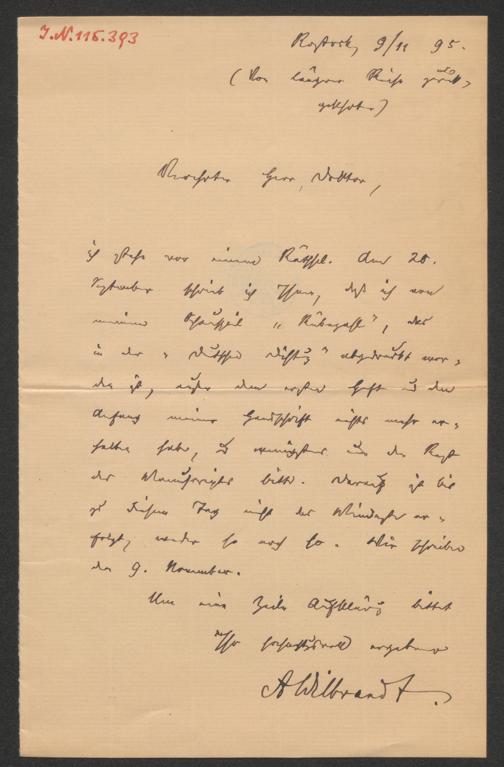 I.N. 115.393
Rostock, 9/11 95.
(Von langer Reise zurück-
gekehrt)
Verehrter Herr Doktor,
ich stehe vor einem Räthsel. Am 20.
September schrieb ich Ihnen, daß ich von
meinem Schauspiel „ ", das
in der „Deutschen Dichtung" abgedruckt wor-
den ist, außer dem ersten Heft und dem
Anfang meiner Handschrift nichts mehr er-
halten habe, und wenigstens um den Rest
des Manuscripts bitte. Darauf ist bis
zu diesem Tag nicht das Mindeste er-
folgt, weder so noch so. Wir schreiben
den 9. November.
Um eine Zeile Aufklärung bittet
Ihr hochachtungsvoll ergebener
AWilbrandt.